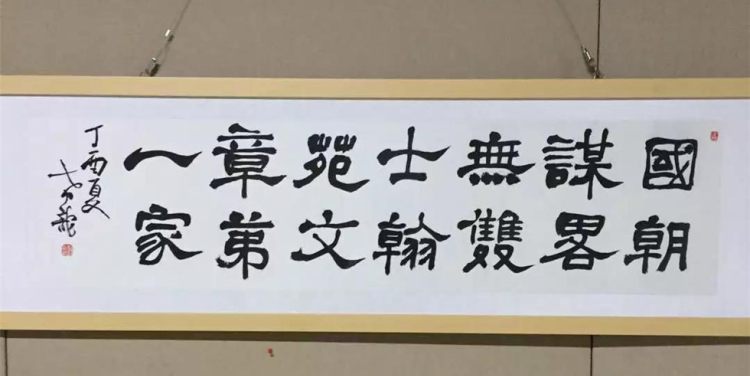 國朝
謀畧
無雙
士翰
苑文
章弟
一家
丁酉夏